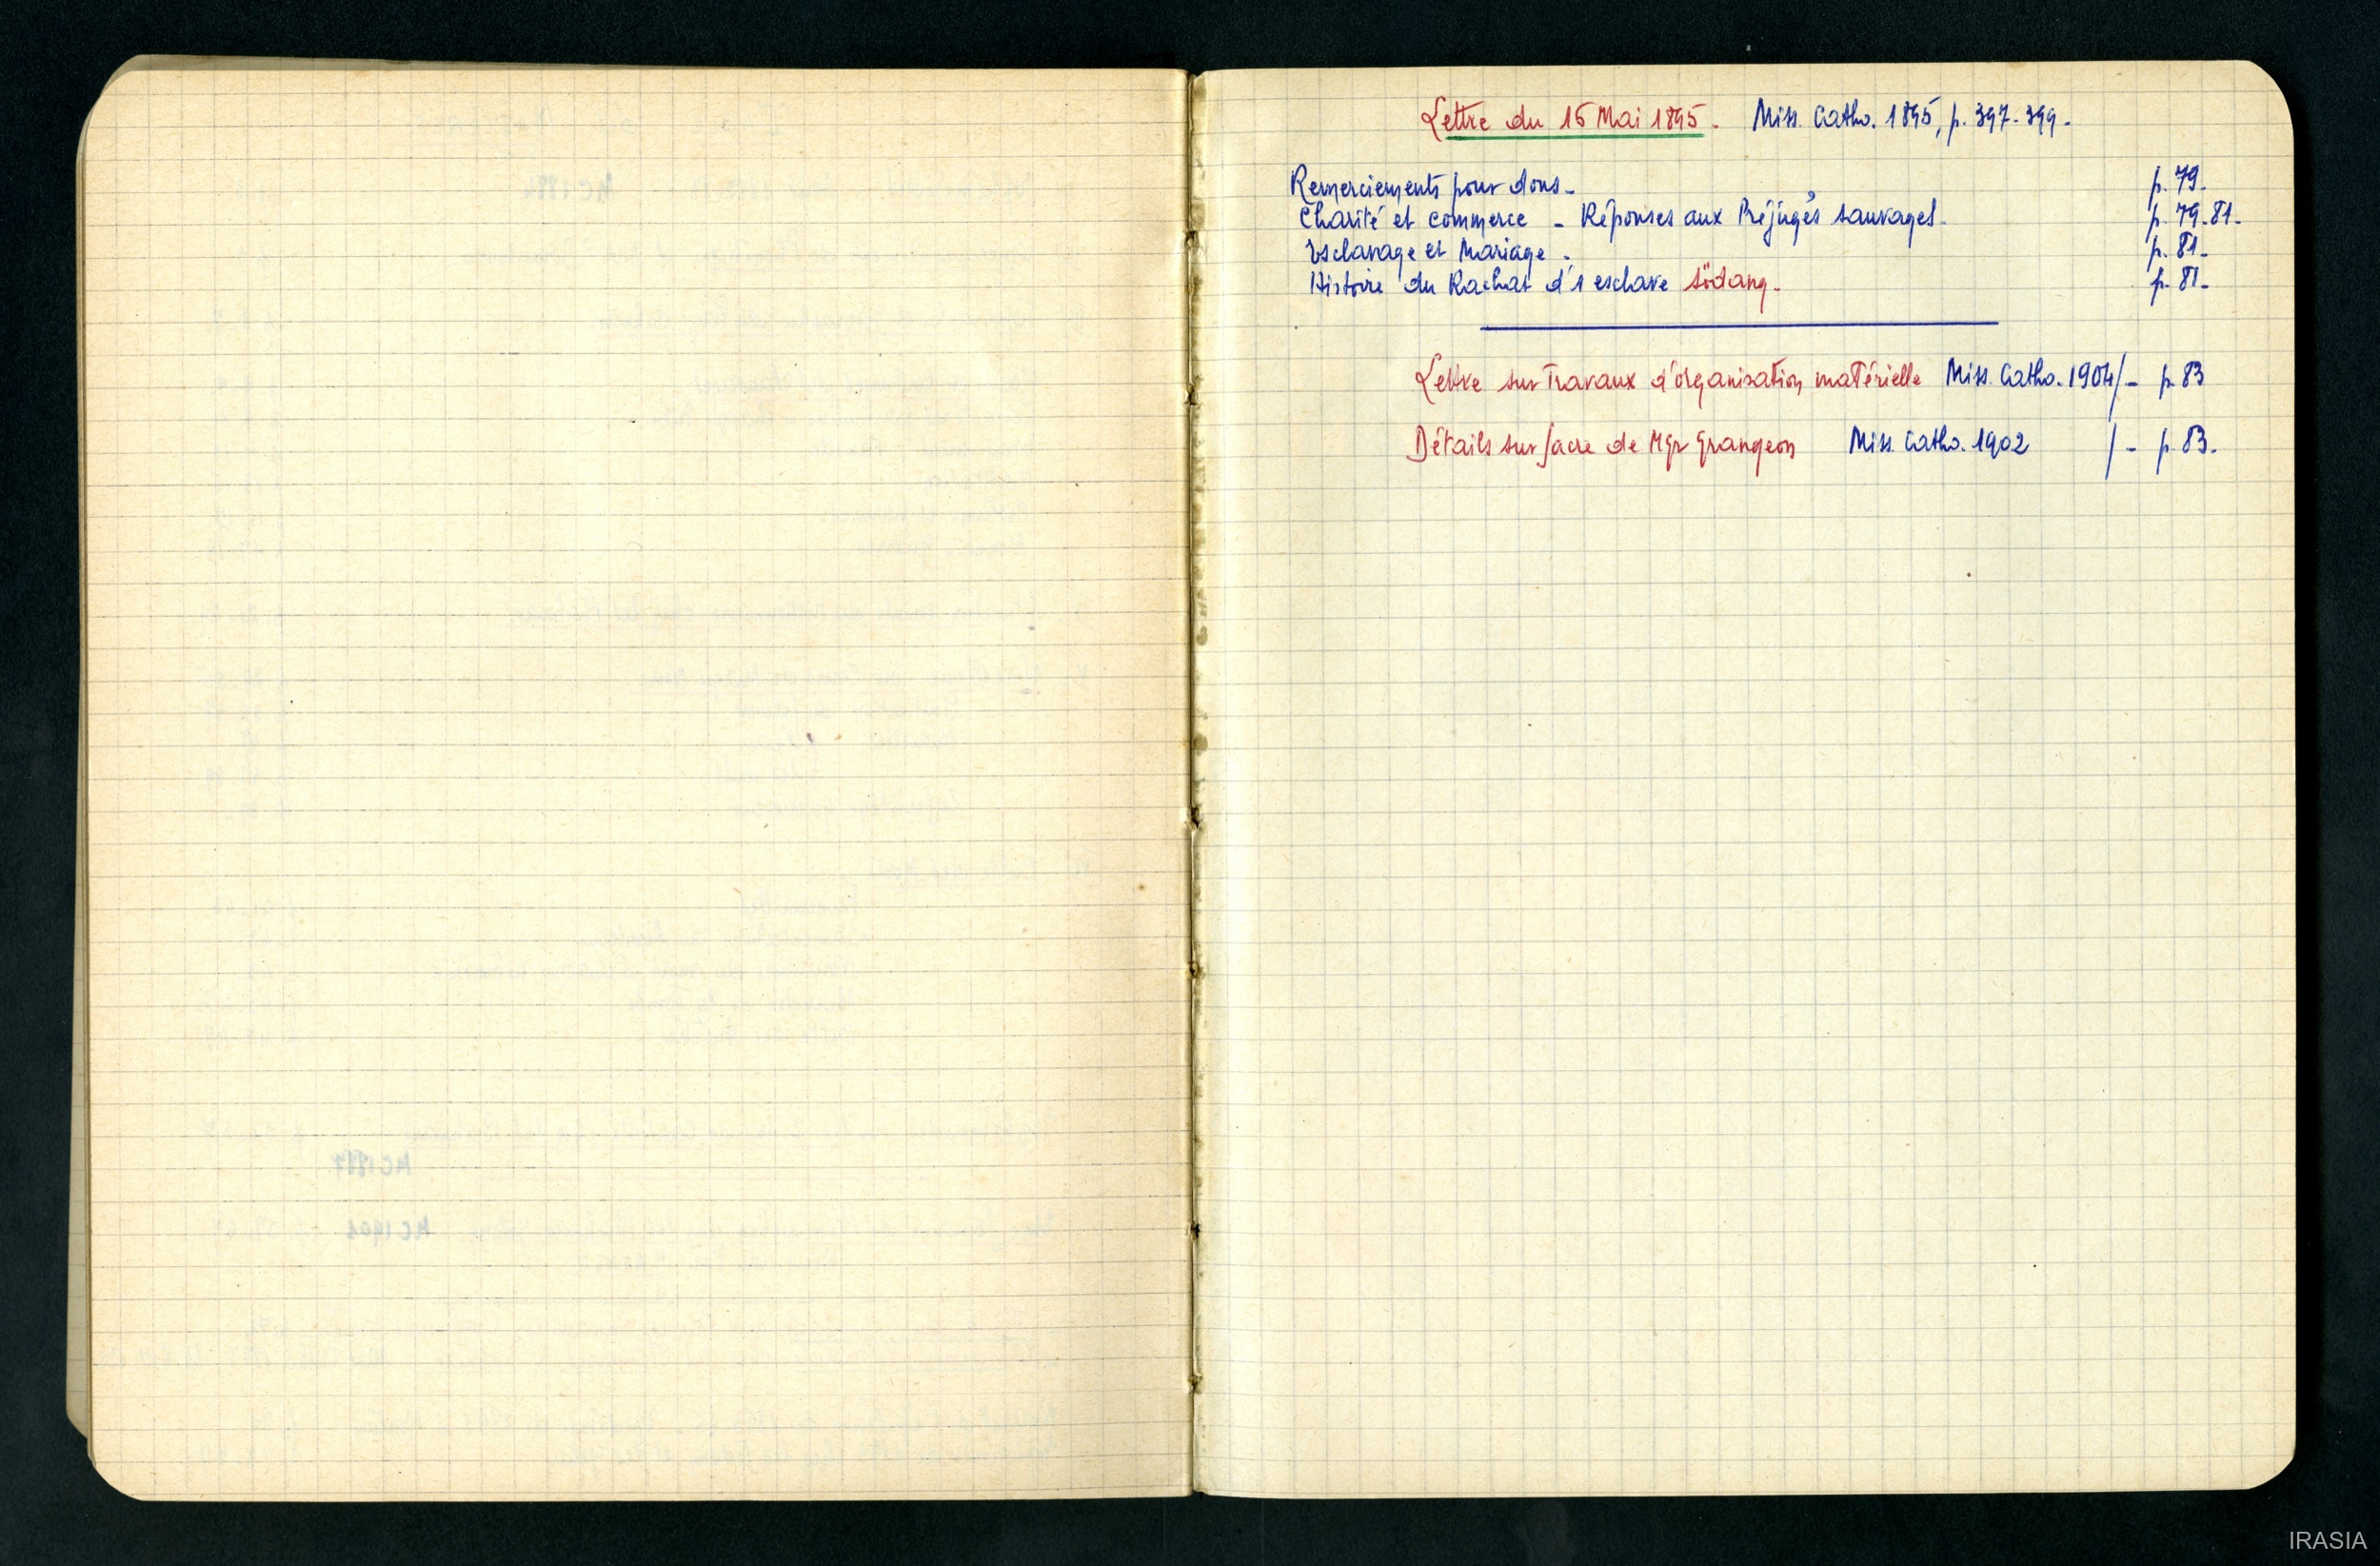 Lettre du 15 Mai 1895. Miss. Catho. 1895, p. 397-399.
Remerciements pour dons - p. 79.
Charité et commerce - Réponses aux Préjugés sauvages. p. 79-81.
Esclavage et Mariage. p. 81.
Histoire du Rachat d'1 esclave södang. p. 81.
Lettre sur Travaux d'organisation matérielle Miss. Catho. 1904/- p. 83
Détails sur sacre de Mgr Grangeon Miss. Catho. 1902 /- p. 83.
IRASIA